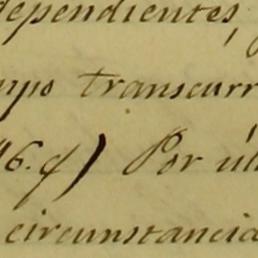 dependientes,
mpo transcurr
96. f) Por úl
circunstancia